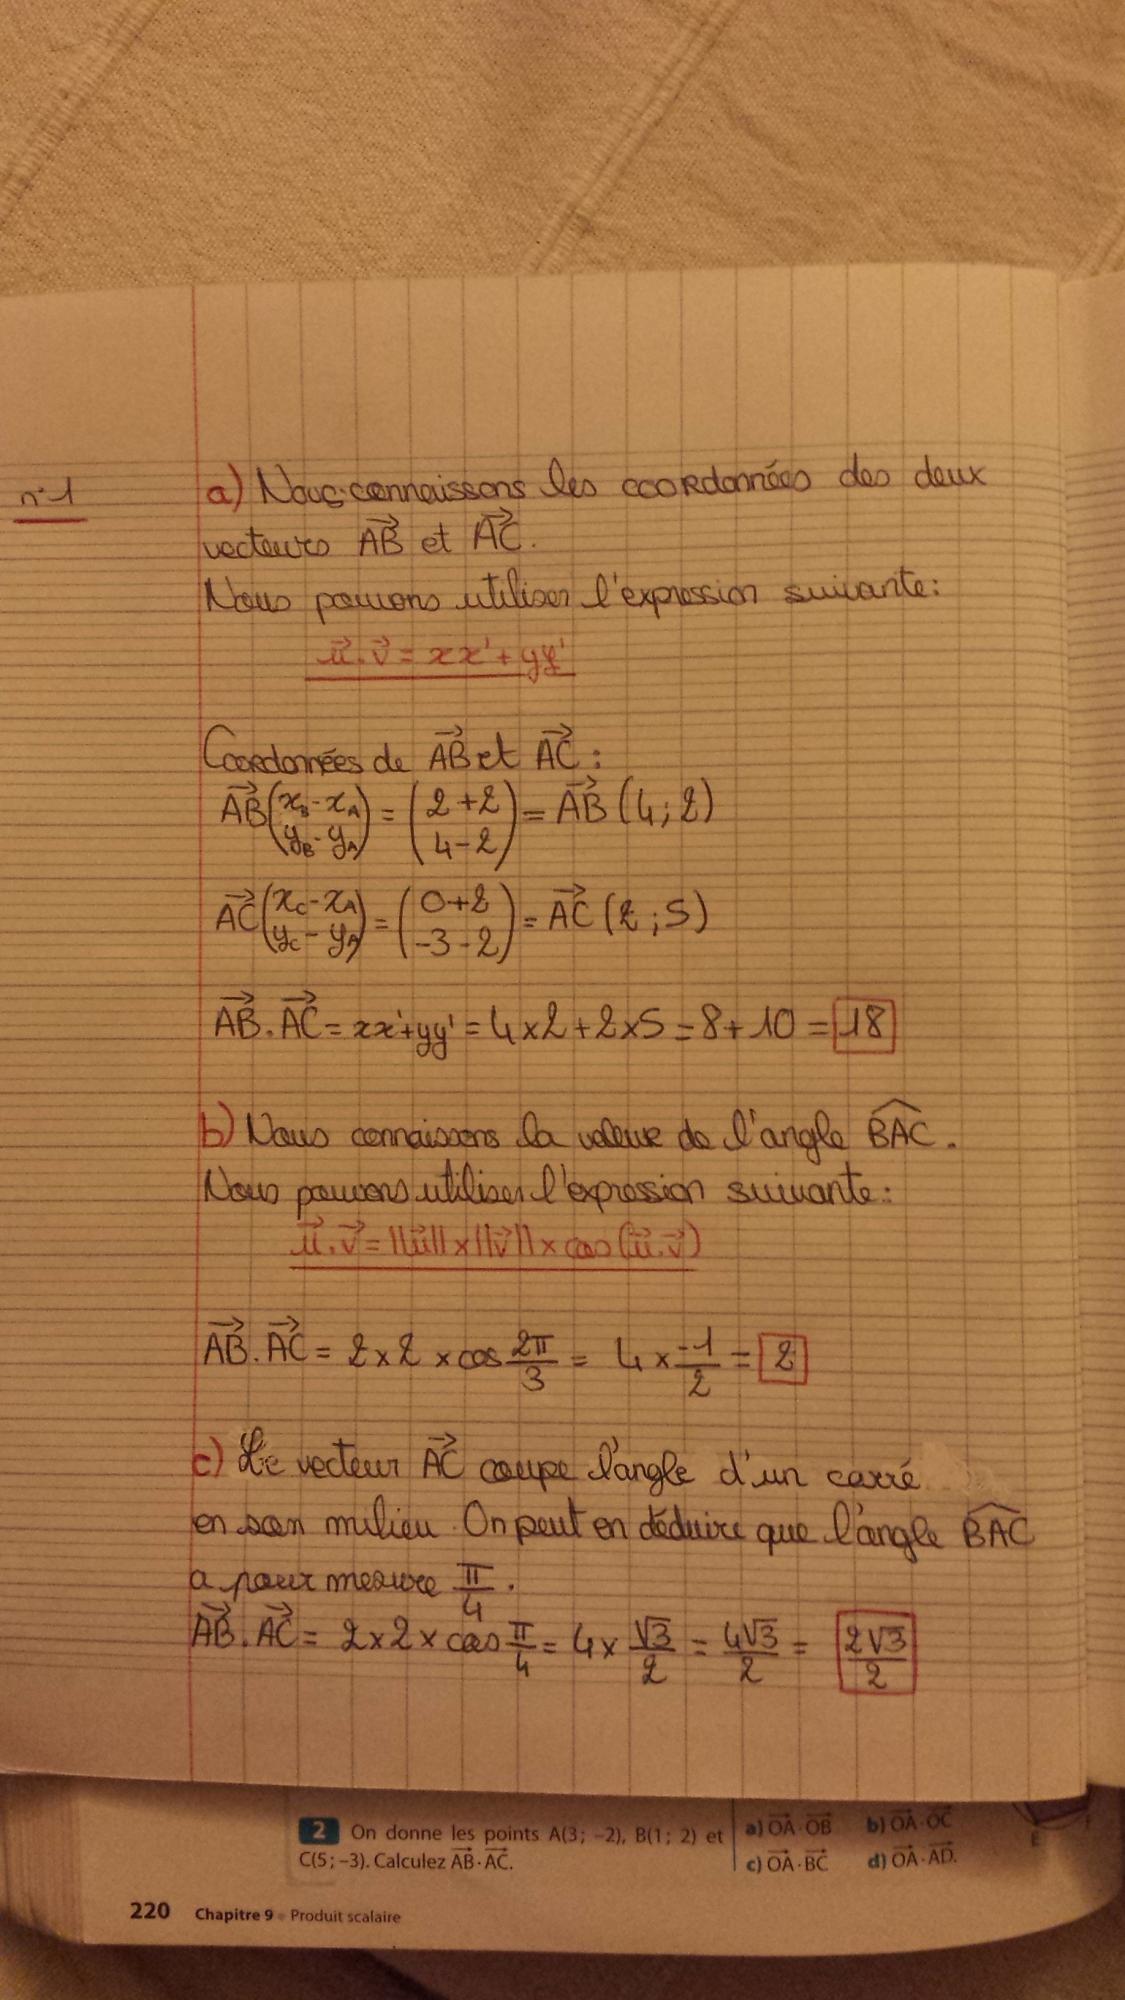 n°1
a) Nous connaissons les coordonnées des deux
vecteurs AB et AC.
Nous pouvons utiliser l'expression suivante:
u⃗.v⃗ = xx'+yy'
Coordonnées de AB et AC :
AB(xB-xA / yB-yA) = (2+2 / 4-2) = AB (4;2)
AC(xC-xA / yC-yA) = (0+2 / -3-2) = AC (2;5)
AB.AC = xx'+yy' = 4x2+2x5 = 8+10 = 18
b) Nous connaissons la valeur de l'angle BAC.
Nous pouvons utiliser l'expression suivante:
u⃗.v⃗ = ||u⃗||x||v⃗||x cos(u⃗.v⃗)
AB.AC = 2x2 x cos 2π/3 = 4 x -1/2 = 2
c) Le vecteur AC coupe l'angle d'un carré
en son milieu. On peut en déduire que l'angle BAC
a pour mesure π/4.
AB.AC = 2x2 x cos π/4 = 4x √3/2 = 4√3/2 = 2√3/2
2 On donne les points A(3; -2), B(1; 2) et
C(5; -3). Calculez AB·AC.
a) OA·OB b) OA·OC
c) OA·BC d) OA·AD.
E
220 Chapitre 9 • Produit scalaire